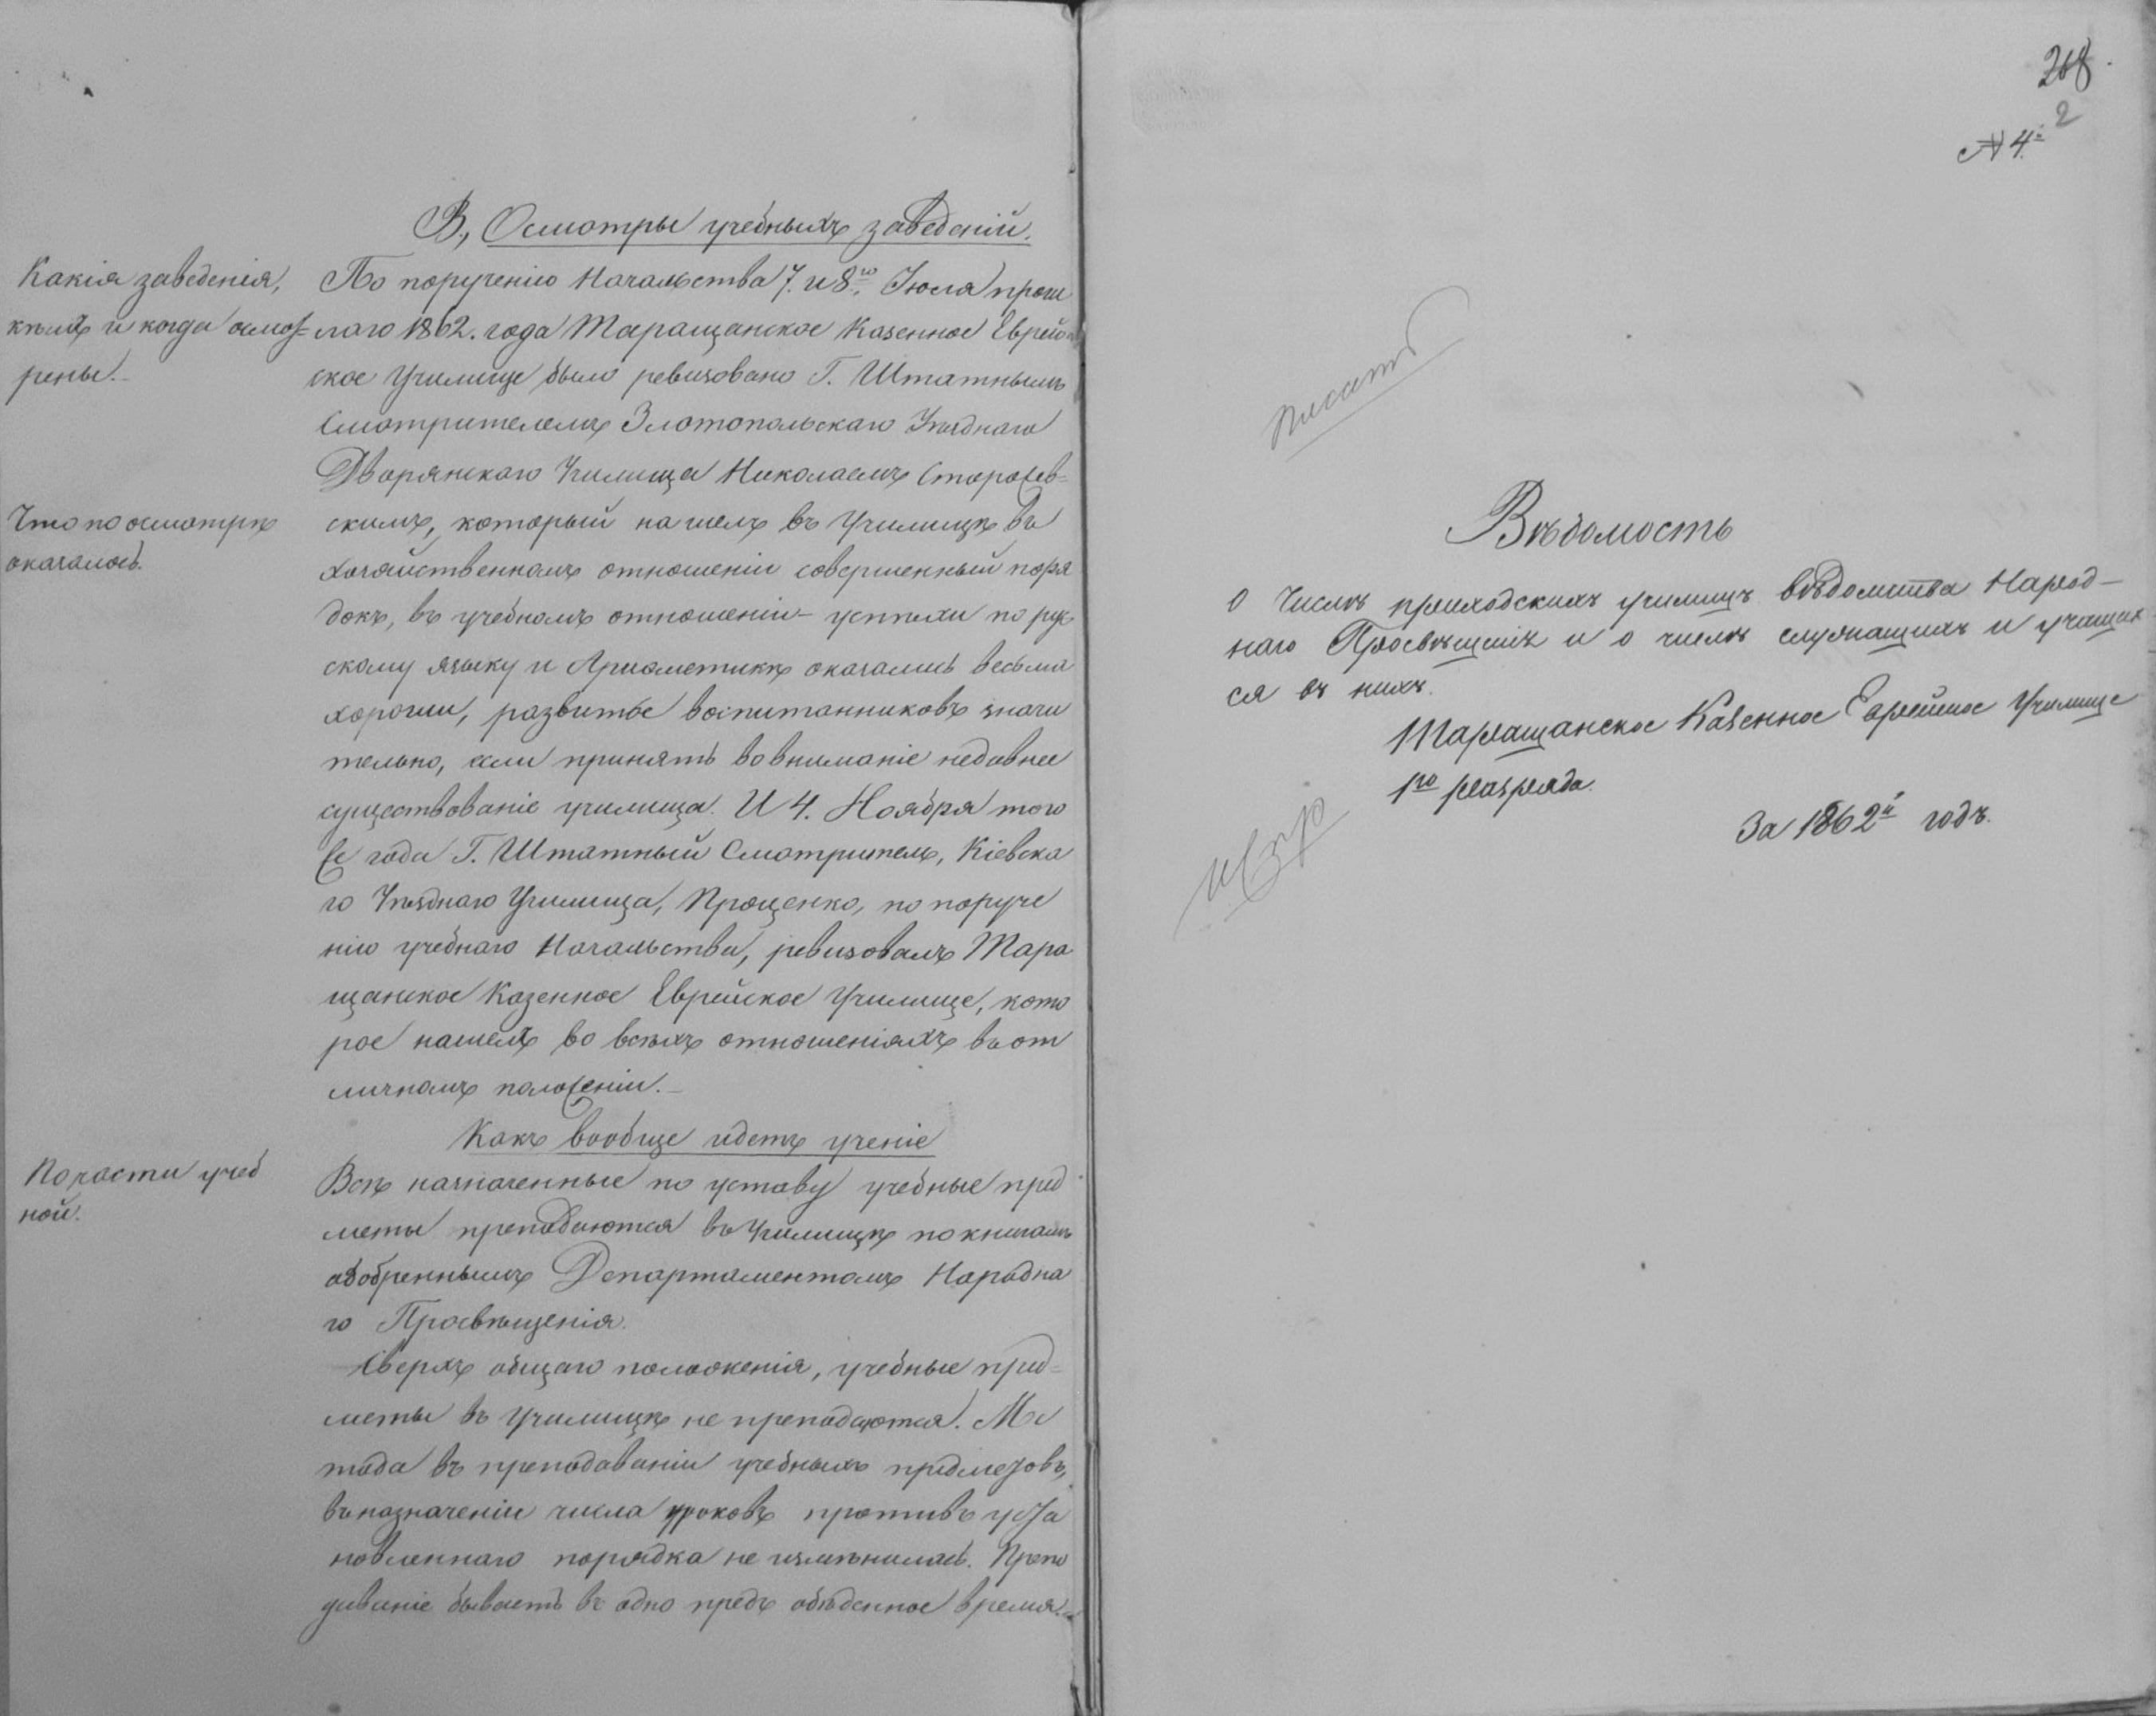 В., Осмотры учебныхъ заведеній.
Какія заведенія,
кѣмъ и когда осмот-
рены.
По порученію Начальства 7. и 8го Іюля прош
лаго 1862. года Таращанское Казенное Еврей
ское Училище было ревизовано Г. Штатнымъ
Смотрителемъ Златопольскаго Уѣзднаго
Дворянскаго Училища Николаемъ Сторожев-
Что по осмотрѣ
оказалось.
скимъ, который нашелъ въ Училищѣ въ
хозяйственномъ отношеніи совершенный поря
докъ, въ учебномъ отношеніи – успѣхи по рус
скому языку и Ариѳметикѣ оказались весьма
хороши, развитье воспитанниковъ значи
тельно, если принять во вниманіе недавнее
существованіе училища. И 4. Ноября того
же года Г. Штатный Смотритель, Кіевска
го Уѣзднаго Училища, Проценко, по поруче
нію учебнаго Начальства, ревизовалъ Тара
щанское Казенное Еврейское Училище, кото
рое нашелъ во всѣхъ отношеніяхъ въ от
личномъ положеніи.–
Какъ вообще идетъ ученіе
По части учеб
ной.
Всѣ назначенные по уставу учебные пред
меты преподаются въ Училищѣ по книгамъ
одобреннымъ Департаментомъ Народна
го Просвѣщенія.
Сверхъ общаго положенія, учебные пред-
меты въ Училищѣ не преподаются. Ме
тода въ преподаваніи учебныхъ предметовъ,
въ назначеніи числа уроковъ противъ уста
новленнаго порядка не измѣнилась. Препо
даваніе бываетъ въ одно предъ обѣденное время.
268.
2
№ 4.
писать
Вѣдомость
О Числѣ приходскихъ училищъ вѣдомства Народ-
наго Просвѣщенія и о числѣ служащихъ и учащих
ся въ нихъ.
Таращанское Казенное Еврейское Училище
1го разряда.
За 1862й годъ.